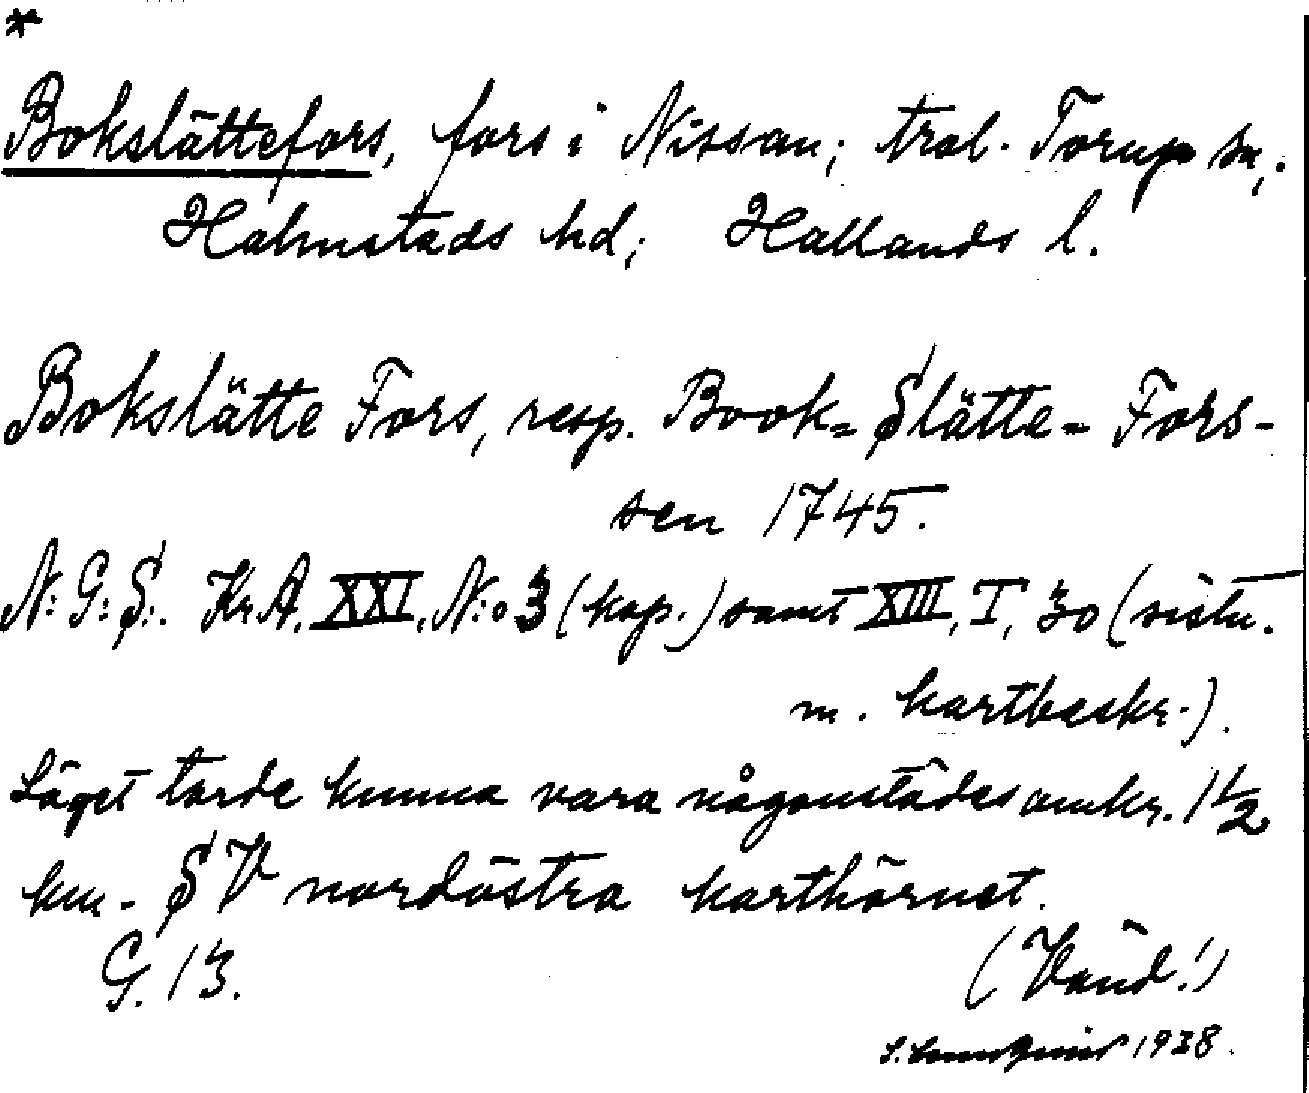 *
Bokslättefors, fors i Nissan; trol. Torup sn,.
Halmstads hd; Hallands l.
Bokslätte Fors, resp. Book= Slätte= Fors-
sen 1745.
N: G: S:. Kr. A. XXI. N:o 3 (kop.) samt XIII, I, 30 (sistn.
m. kartbeskr.).
Läget torde kunna vara någonstädes omkr. 1 1/2
km. SV nordöstra karthörnet.
G. 13. (Vänd!)
1938.